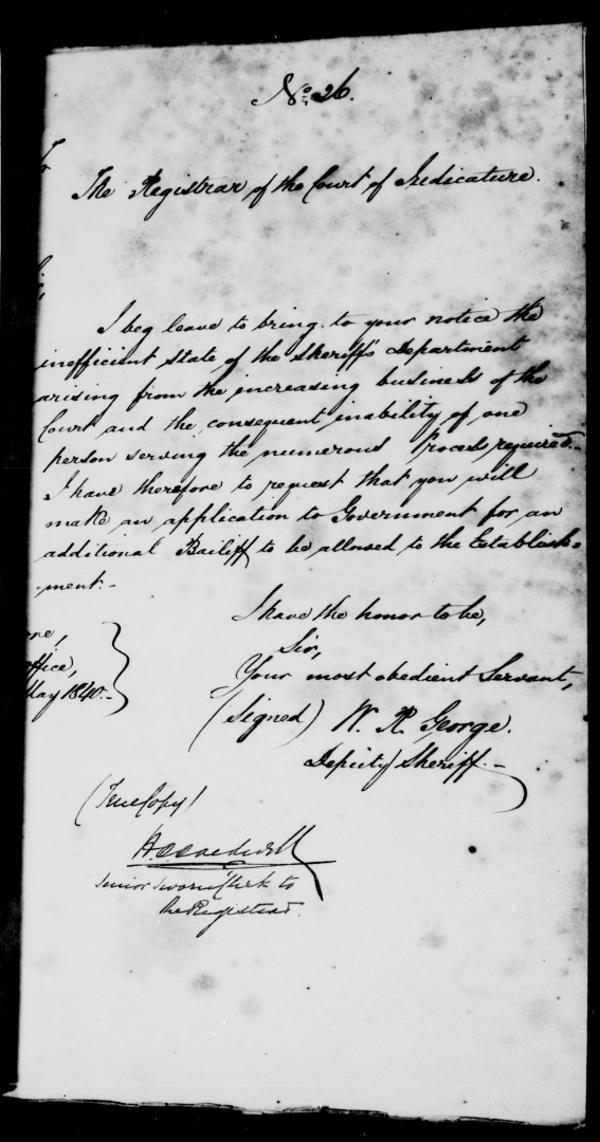 No. 26.
To
The Registrar of the Court of Judicature.
I beg leave to bring to your notice the
inefficient State of the Sheriff's Department
arising from the increasing business of the
Court and the consequent inability of one
person serving the numerous Process required.-
I have therefore to request that you will
make an application to Government for an
additional Bailiff to be allowed to the Establish-
-ment.-
I have the honor to be,
Sir,
Your most obedient Servant,
(Signed) W. R. George.
Deputy Sheriff.-
ffice,
May 1840.-
(True Copy)
Senior Sworn Clerk to
the Registrar.